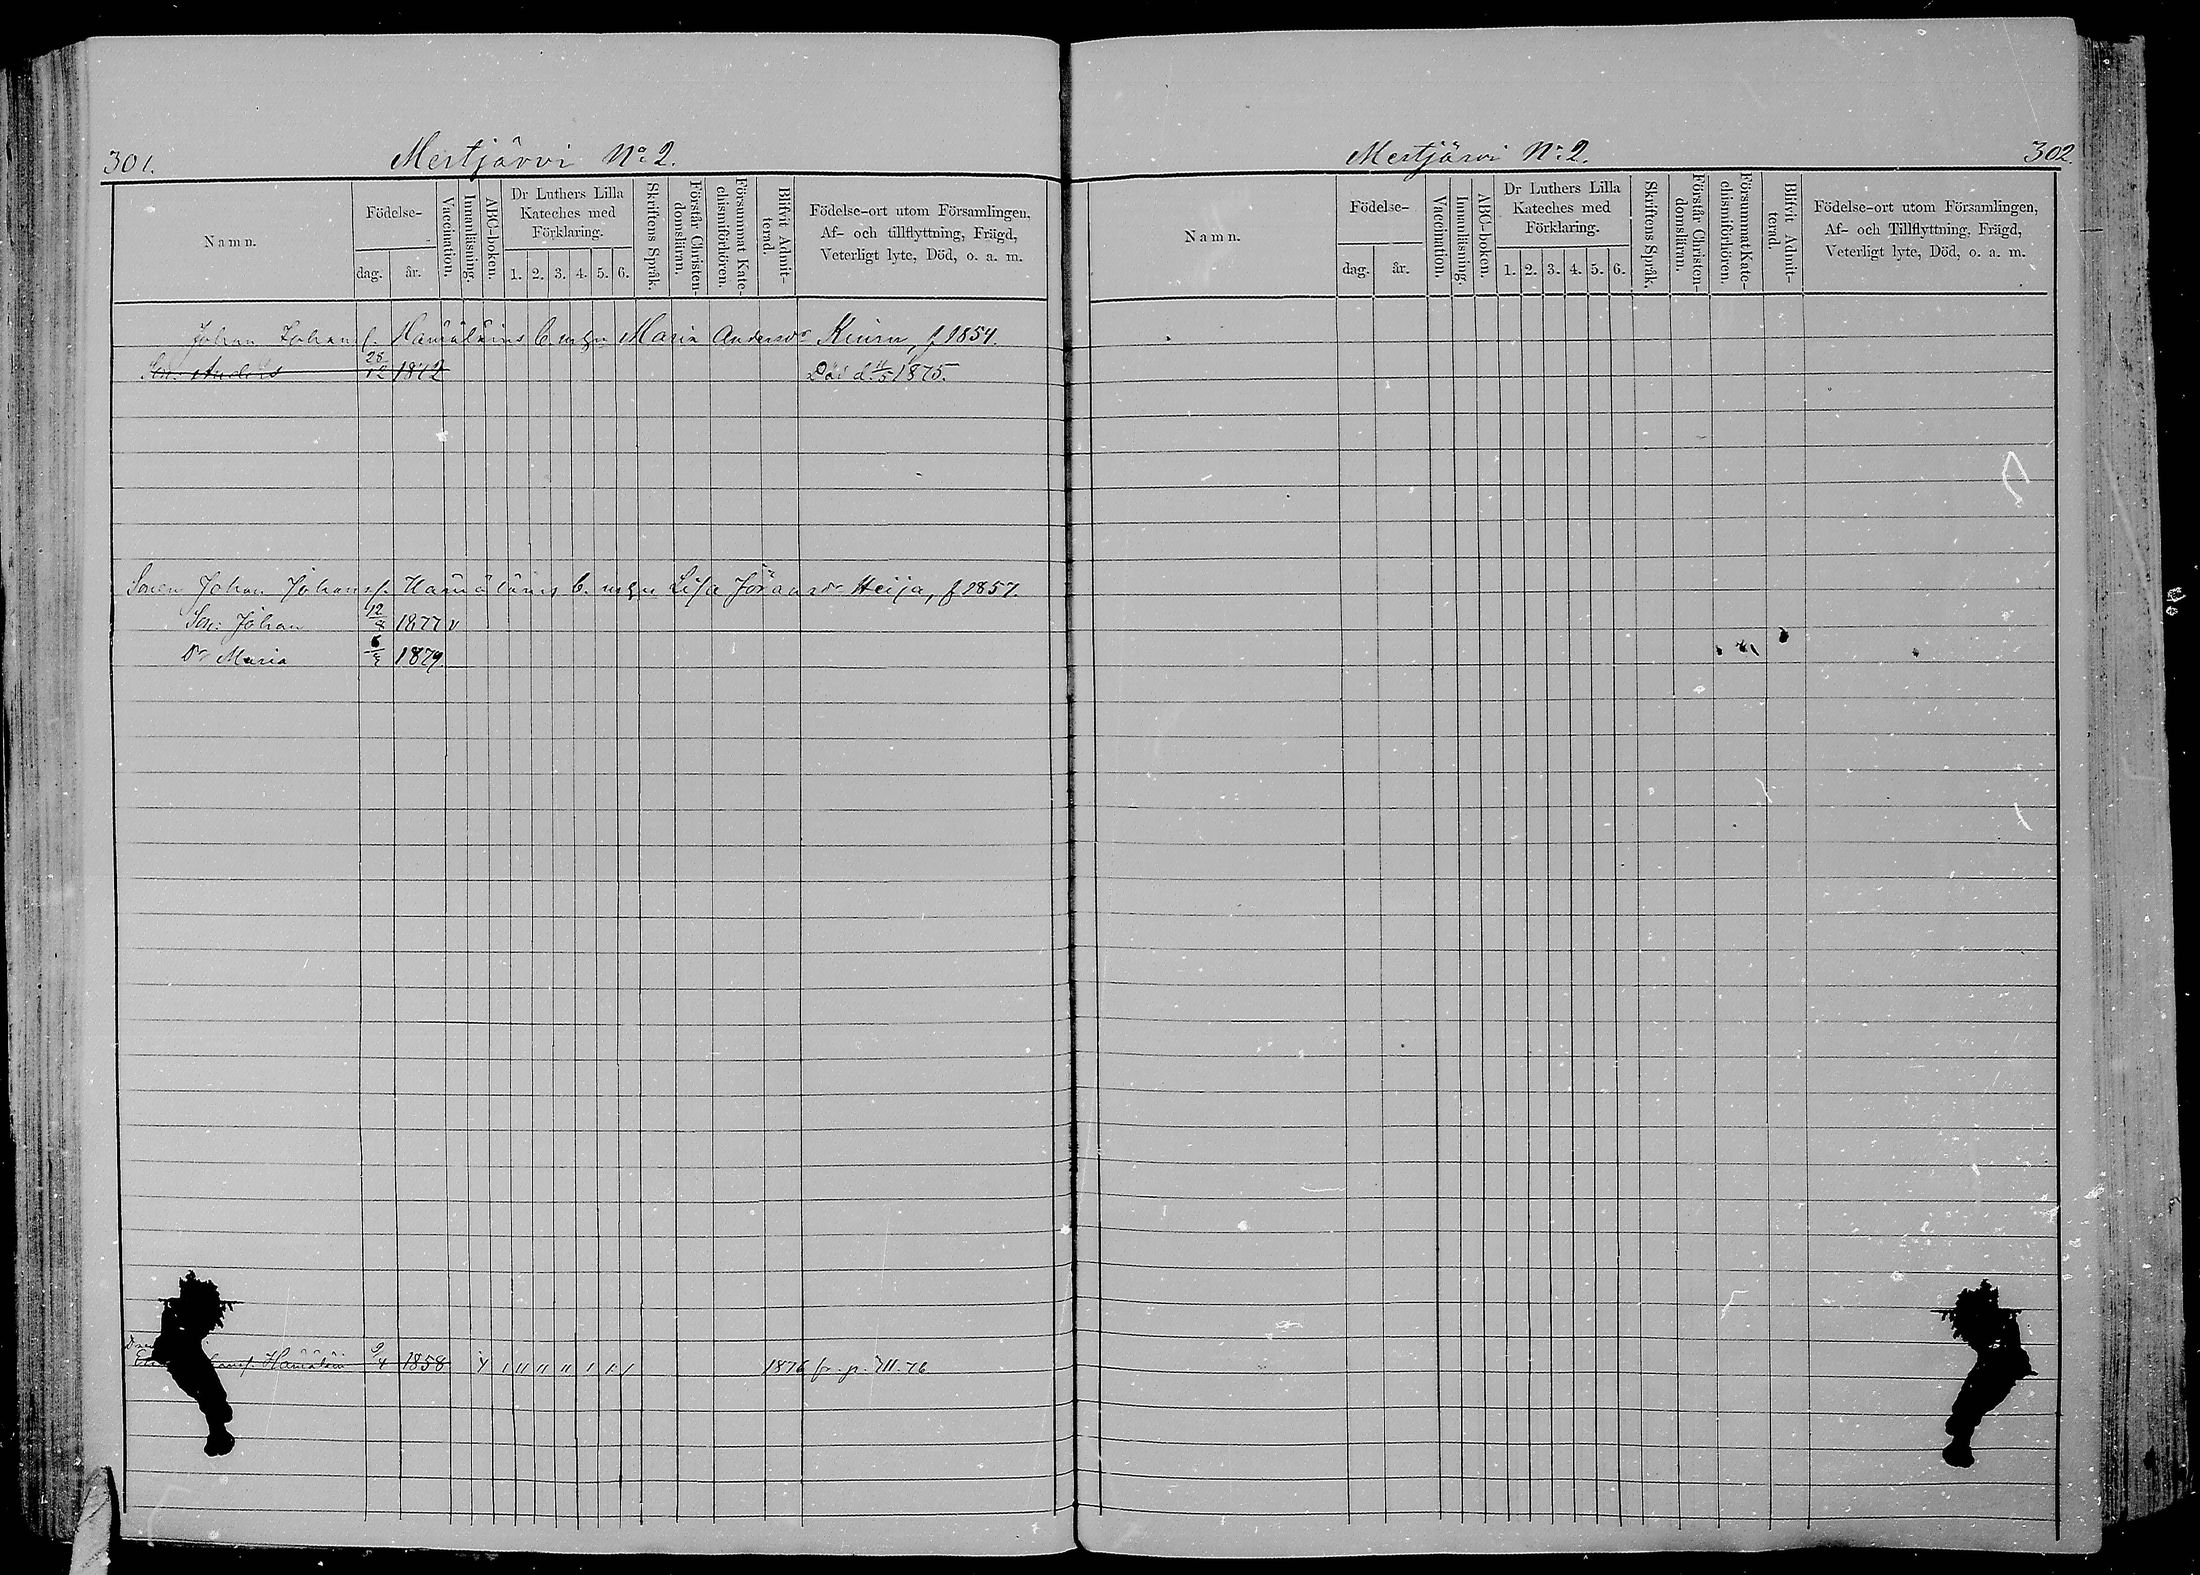 301.
Mertjärvi No 2.
Namn.
Födelse-
dag.
år.
Vaccination.
Innanläsning.
ABC-boken.
Dr Luthers Lilla
Kateches med
Förklaring.
1. 2. 3. 4. 5. 6.
Skriftens Språk.
Förstår Christen-
domsläran.
Försummat Kate-
chismiförhören.
Blifvit Admit-
terad.
Födelse-ort utom Församlingen,
Af- och tillflyttning, Frägd,
Veterligt lyte, Död, o. a. m.
Johan Johans. Hämäläins b. m. h:u Maria Andersdr Kiuru, f 1854.
Son: Anders 28/12 1872 Död d. 11/5 1875.
Sonen Johan Johans. Hämäläins b. m. h:u Lisa Jöransdr Heija, f 1857.
Son: Johan 12/8 1877 v
Dr Maria 1879
Hämäläin 9/4 1858 1876 fr. p. 711. 76
Mertjärvi No 2.
302.
Namn.
Födelse-
dag.
år.
Vaccination.
Innanläsning.
ABC-boken.
Dr Luthers Lilla
Kateches med
Förklaring.
1. 2. 3. 4. 5. 6.
Skriftens Språk.
Förstår Christen-
domsläran.
Försummat Kate-
chismiförhören.
Blifvit Admit-
terad.
Födelse-ort utom Församlingen,
Af- och Tillflyttning, Frägd,
Veterligt lyte, Död, o. a. m.